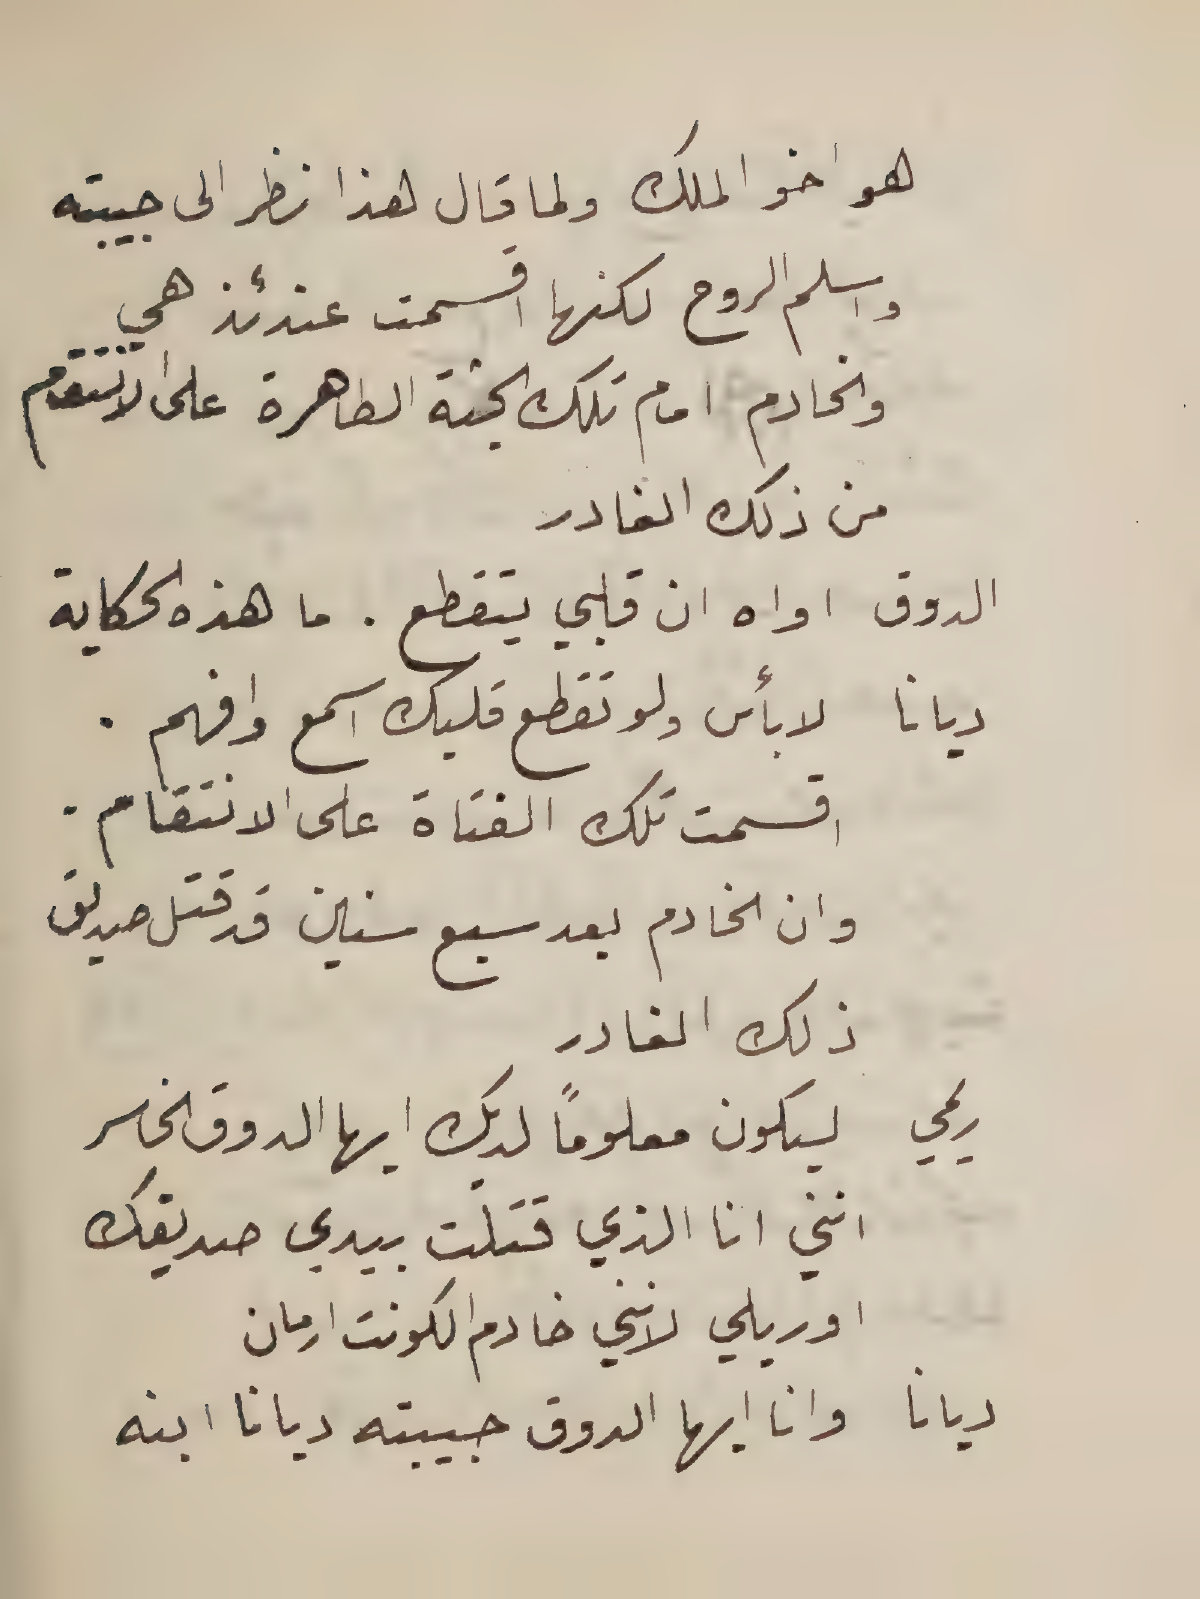 هو اخو الملك ولما قال هذا نظر الى حبيبته
واسلم الروح لكنها اقسمت عندئذ هي
والخادم امام تلك الجثة الطاهرة على الانتقام
من ذلك الغادر
الدوق اواه ان قلبي يتقطع . ما هذه الحكاية
ديانا لا بأس ولو تقطع قلبك اسمع وافهم .
اقسمت تلك الفتاة على الانتقام .
وان الخادم بعد سبع سنين قد قتل صديق
ذلك الغادر
ريمي ليكون معلوماً لديك ايها الدوق الخاسر
انني انا الذي قتلت بيدي صديقك
اوريلي لانني خادم الكونت ارمان
ديانا وانا ايها الدوق حبيبته ديانا ابنه